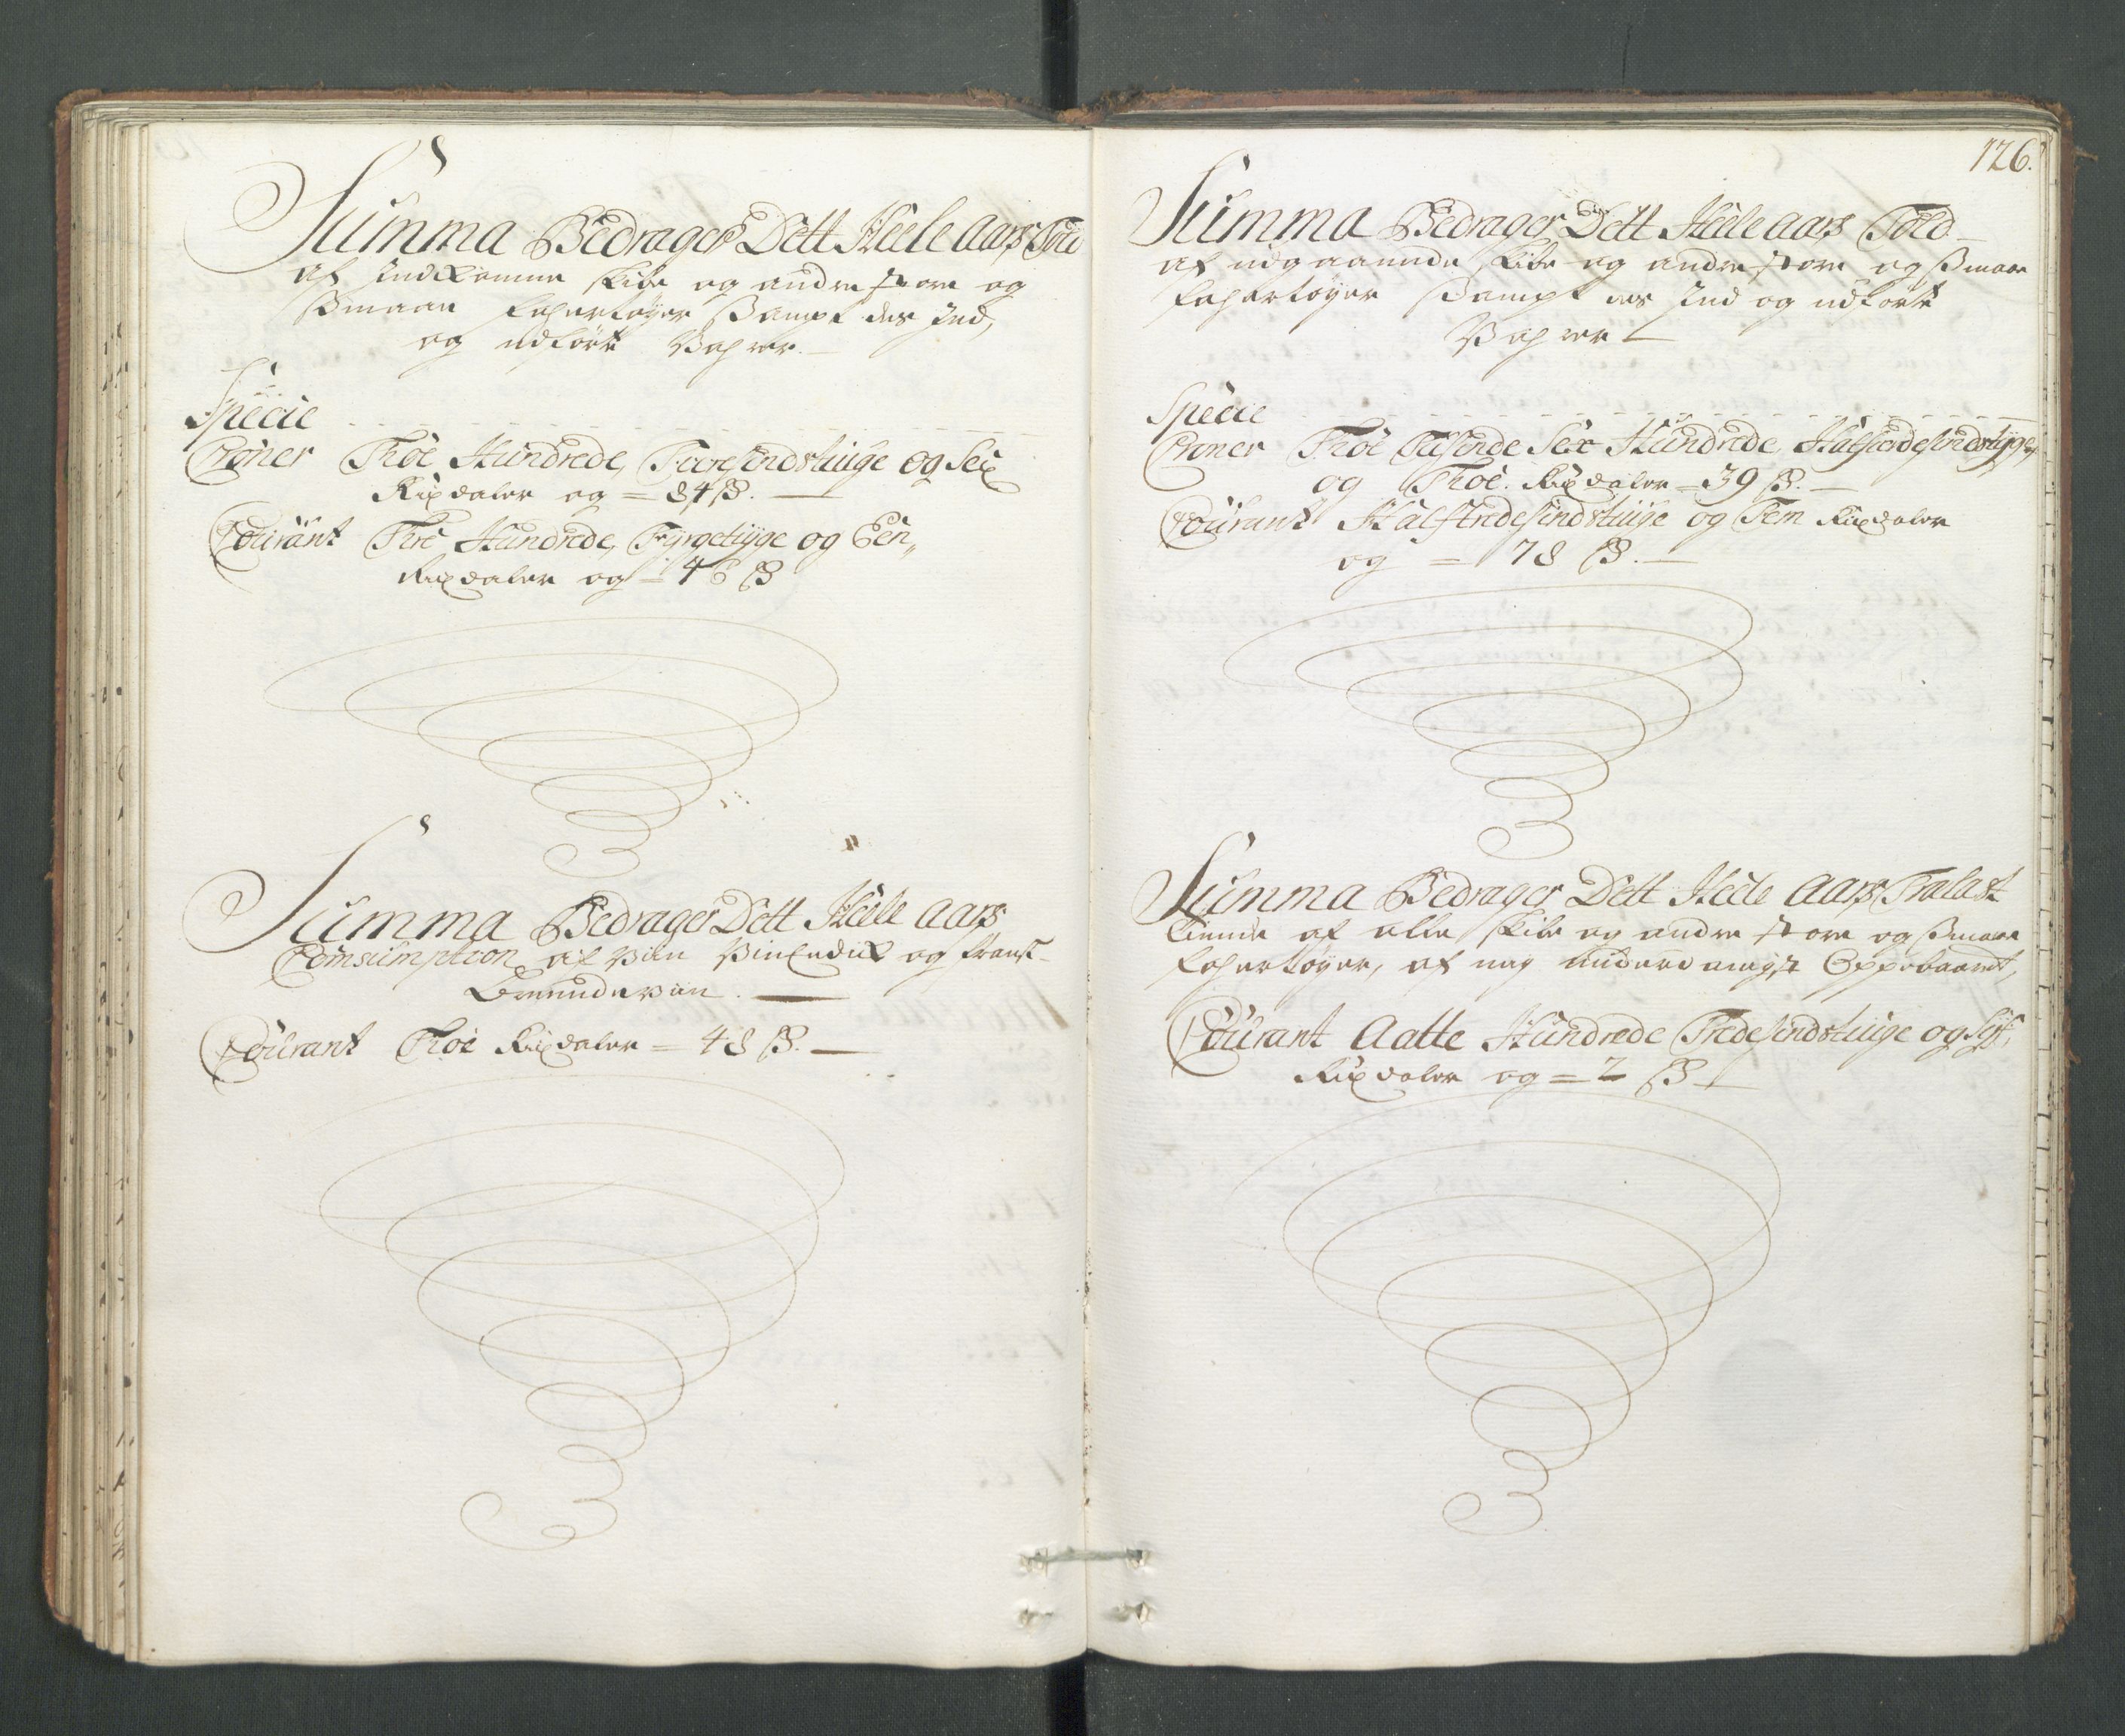 Summa Bedrager Dett Heele Aars Told
af Indkomne Skibe og andre store og
Smaae Fahrtøyer Sampt des Ind,
og udførte Vahrer.
Specie
Croner Thoe Hundrede, Fiiresindstiuge og Sex
Rixdaler og = 84 ß.
Courant Tre Hundrede, Fyrgetiyge og Een,,
Rixdaler og = 46 ß
Summa Bedrager Dett Heele Aars
Comsumption af Viin Viinedick og Fransk
Brendeviin.
Courant Thoe Rixdaler = 48 ß.
126.
Summa Bedrager Dett Heele Aars Told
af udgaaende Skibe og andre store og Smaae
Fahrtøyer Sampt des Ind og udførte
Vahrer
Specie
Croner Thoe Tusende Sex Hundrede, Halfierdesindstyge,
og Thoe. Rixdaler = 39 ß.
Courant Halftredesindstiuge og Fem Rixdaler
og = 78 ß.
Summa Bedrager Dett Heele Aars Tralast
Tiende af alle Skibe og andre store og Smaae
Fahrtøyer, af mig underdanigst Oppebaaret,
Courant Aatte Hundrede Tredesindstiuge og Siuf,
Rixdaler og = 2 ß